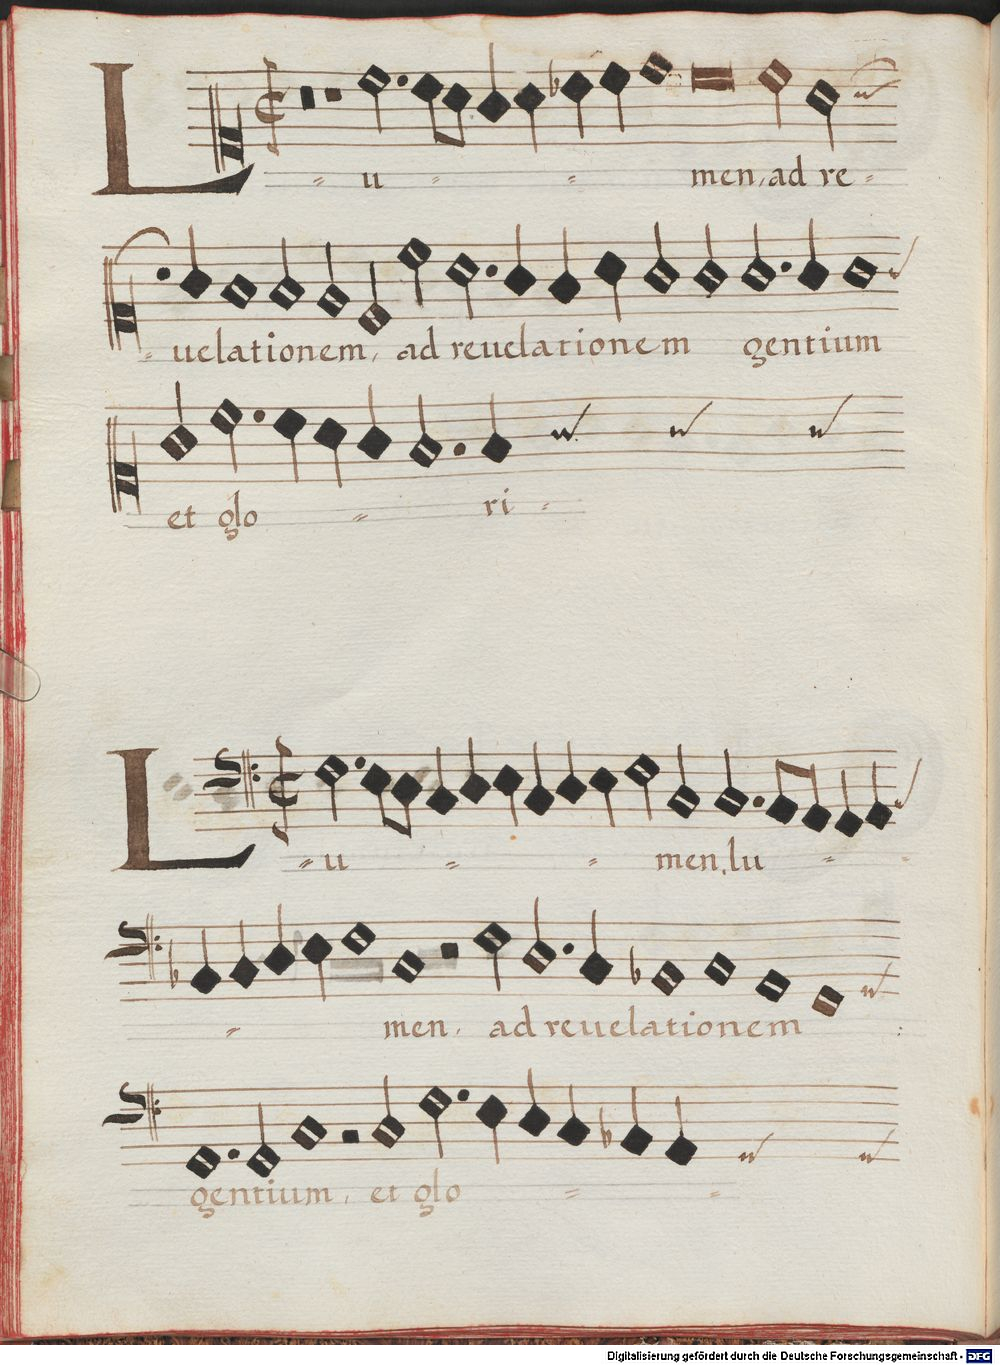 Lu men, ad re
uelationem, ad reuelationem gentium
et glo ri
Lu men, lu
men, ad reuelationem
gentium, et glo
Digitalisierung gefördert durch die Deutsche Forschungsgemeinschaft - DFG